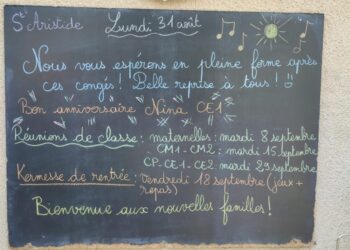 St Aristide Lundi 31 août
Nous vous espérons en pleine forme après
ces congés ! Belle reprise à tous !
Bon anniversaire Nina CE1
Réunions de classe : maternelles : mardi 8 septembre
CM1-CM2 : mardi 15 septembre
CP-CE1-CE2 mardi 23 septembre
Kermesse de rentrée : vendredi 18 septembre (jeux +
repas)
Bienvenue aux nouvelles familles !